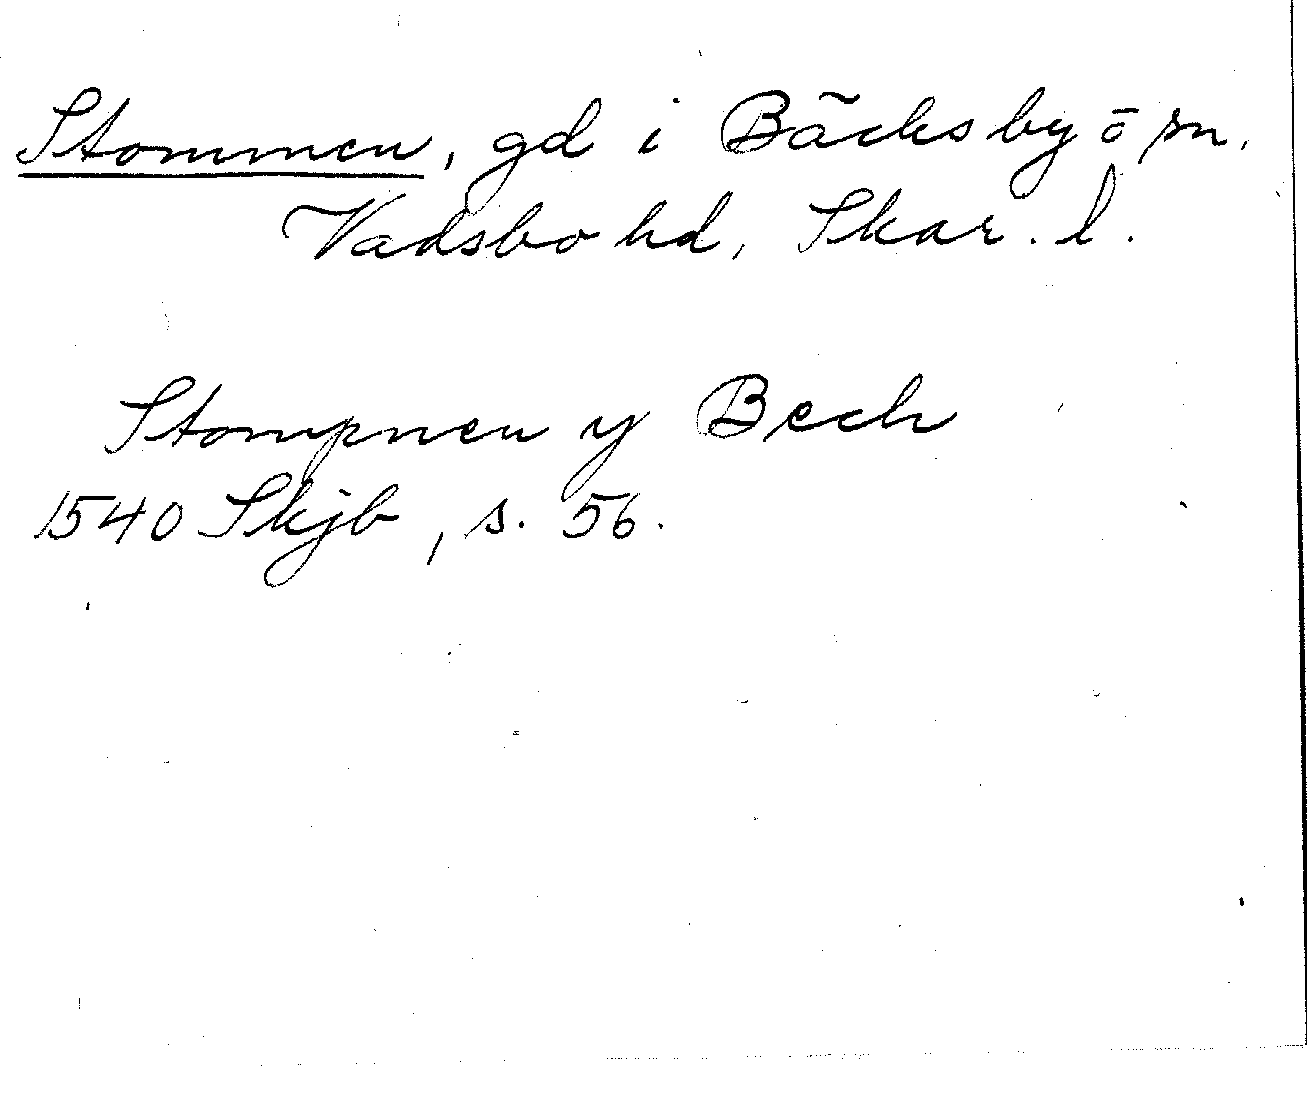 Stommen, gd i Bäcks by ö sn,
Vadsbo hd, Skar. l.
Stompnen y Bech
1540 Skjb, s. 56.